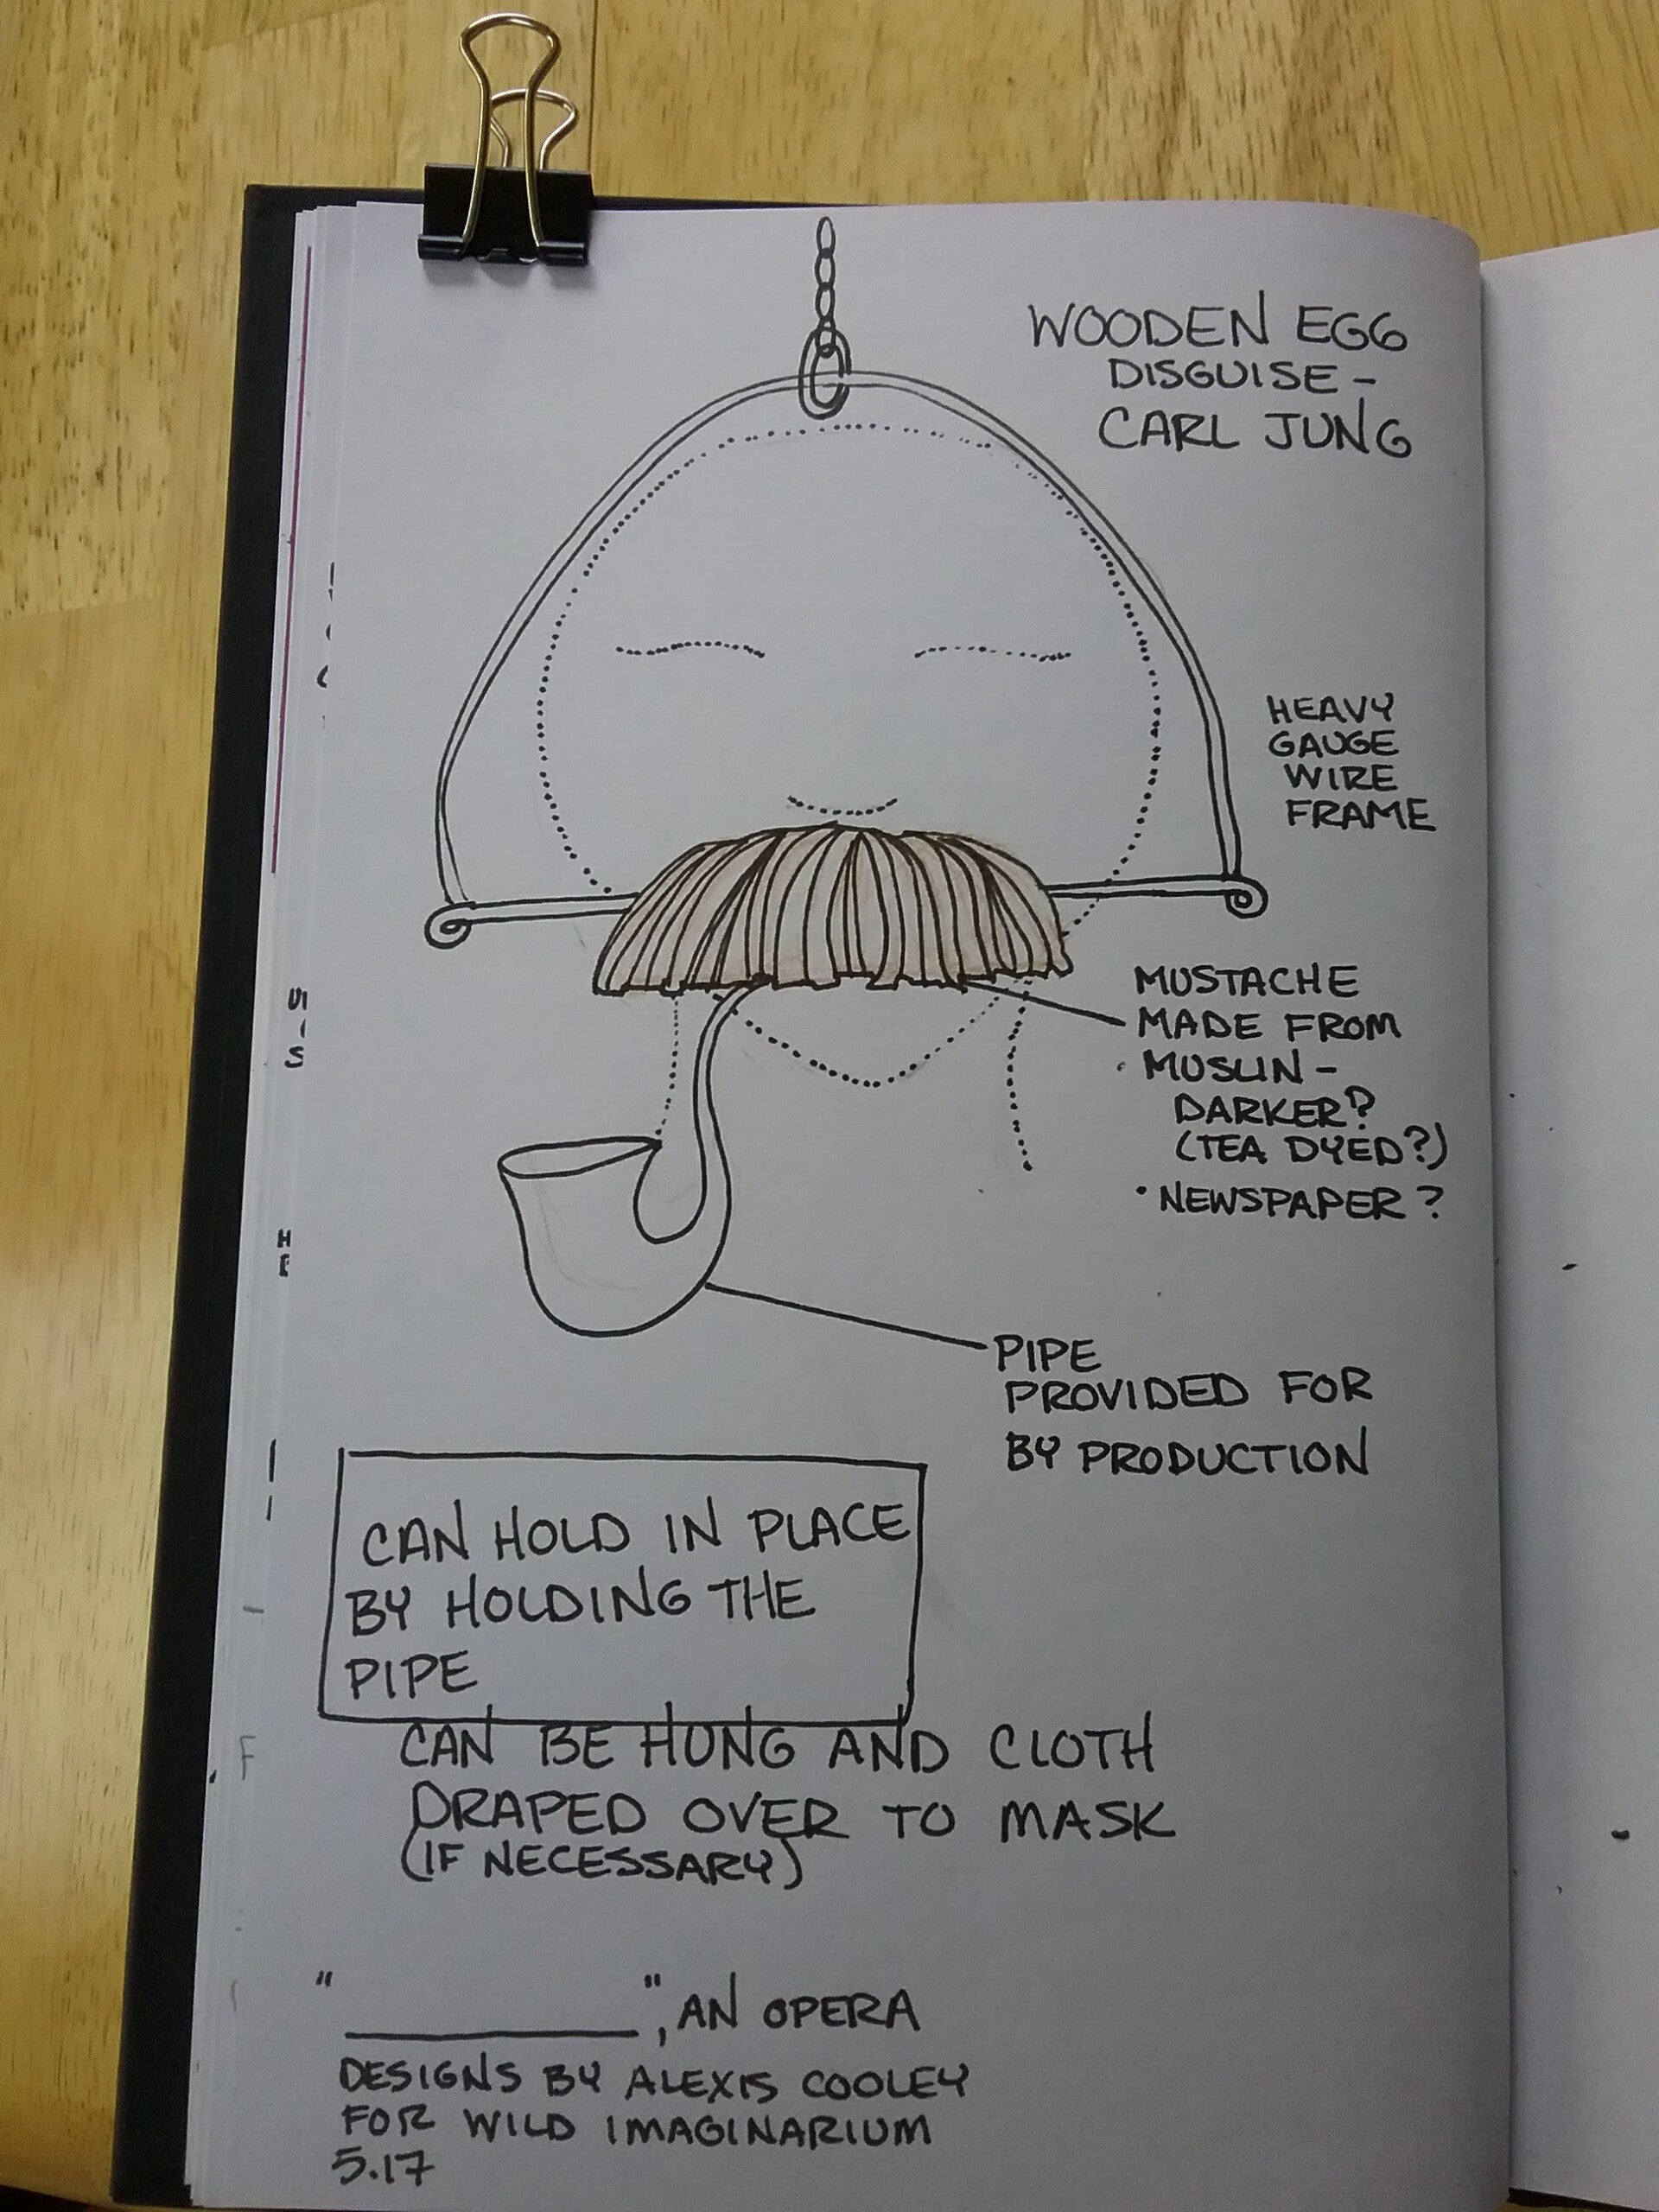 WOODEN EGG
DISGUISE -
CARL JUNG
HEAVY
GAUGE
WIRE
FRAME
MUSTACHE
MADE FROM
• MUSLIN -
DARKER?
(TEA DYED?)
• NEWSPAPER?
PIPE
PROVIDED FOR
BY PRODUCTION
CAN HOLD IN PLACE
BY HOLDING THE
PIPE
CAN BE HUNG AND CLOTH
DRAPED OVER TO MASK
(IF NECESSARY)
"__________", AN OPERA
DESIGNS BY ALEXIS COOLEY
FOR WILD IMAGINARIUM
5.17